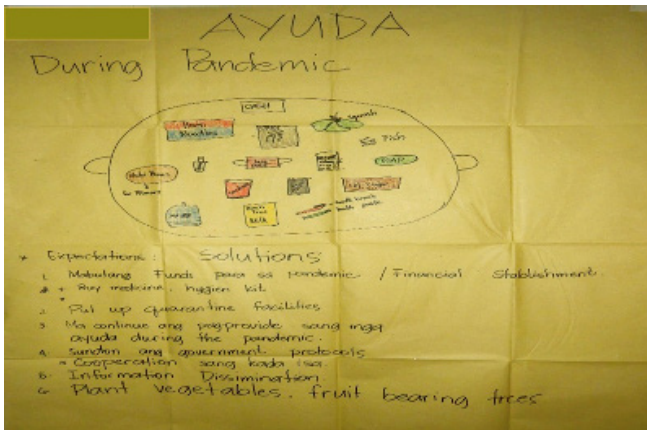 AYUDA
During Pandemic
CASH
Noodles
Squash
Fish
SOAP
Milk
* Expectations: Solutions
1. Mabulang Funds para sa pandemic / Financial Stablishment.
* + Buy medicine, hygien kit
2. Put up quarantine facilities
3. Ma continue ang pagprovide sang mga
ayuda during the pandemic.
4. Sundon ang government protocols
= Cooperation sang kada isa.
5. Information Dissimination.
6. Plant vegetables, fruit bearing trees